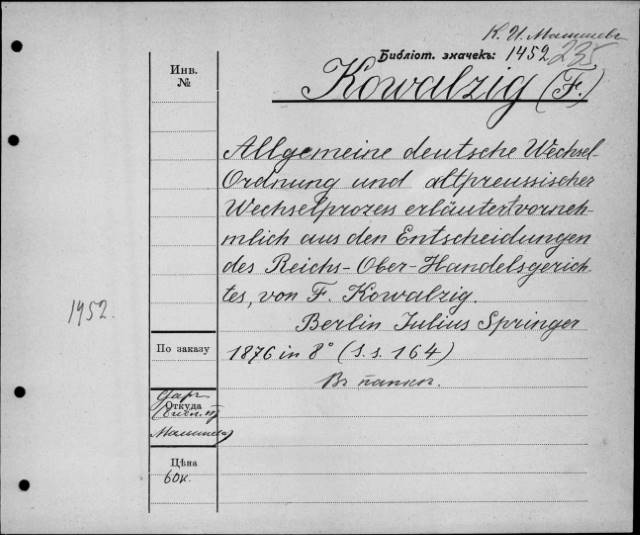 К. И. Малышевъ
Библіот. значекъ: 1452 235
Инв.
№
Kowalzig (F.)
Allgemeine deutsche Wechsel-
Ordnung und altpreussischer
Wechselprozess erläutert vorneh-
mlich aus den Entscheidungen
des Reichs-Ober-Handelsgerich-
tes, von F. Kowalzig.
1952.
Berlin Julius Springer
По заказу
1876 in 8° (S. s. 164)
Въ папкѣ.
Даръ
Откуда
Малышева
Цѣна
60 к.